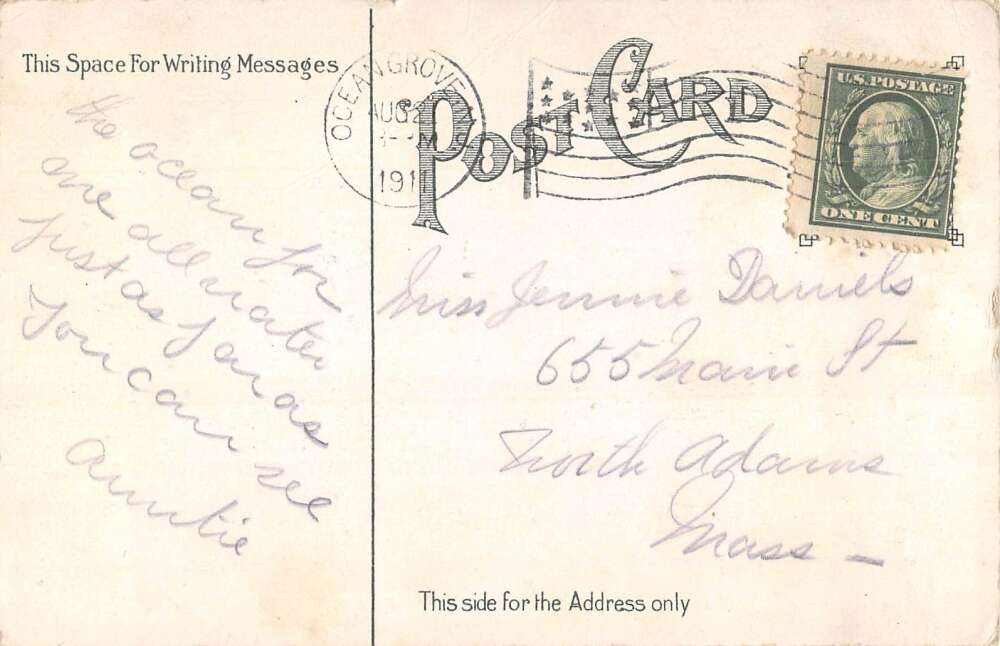 This Space For Writing Messages
the ocean for
me all water
just as far as
You can see
Auntie
OCEAN GROVE
AUG 2
M
191
POST CARD
U.S. POSTAGE
ONE CENT
Miss Jennie Daniels
655 Main St
North Adams
Mass —
This side for the Address only